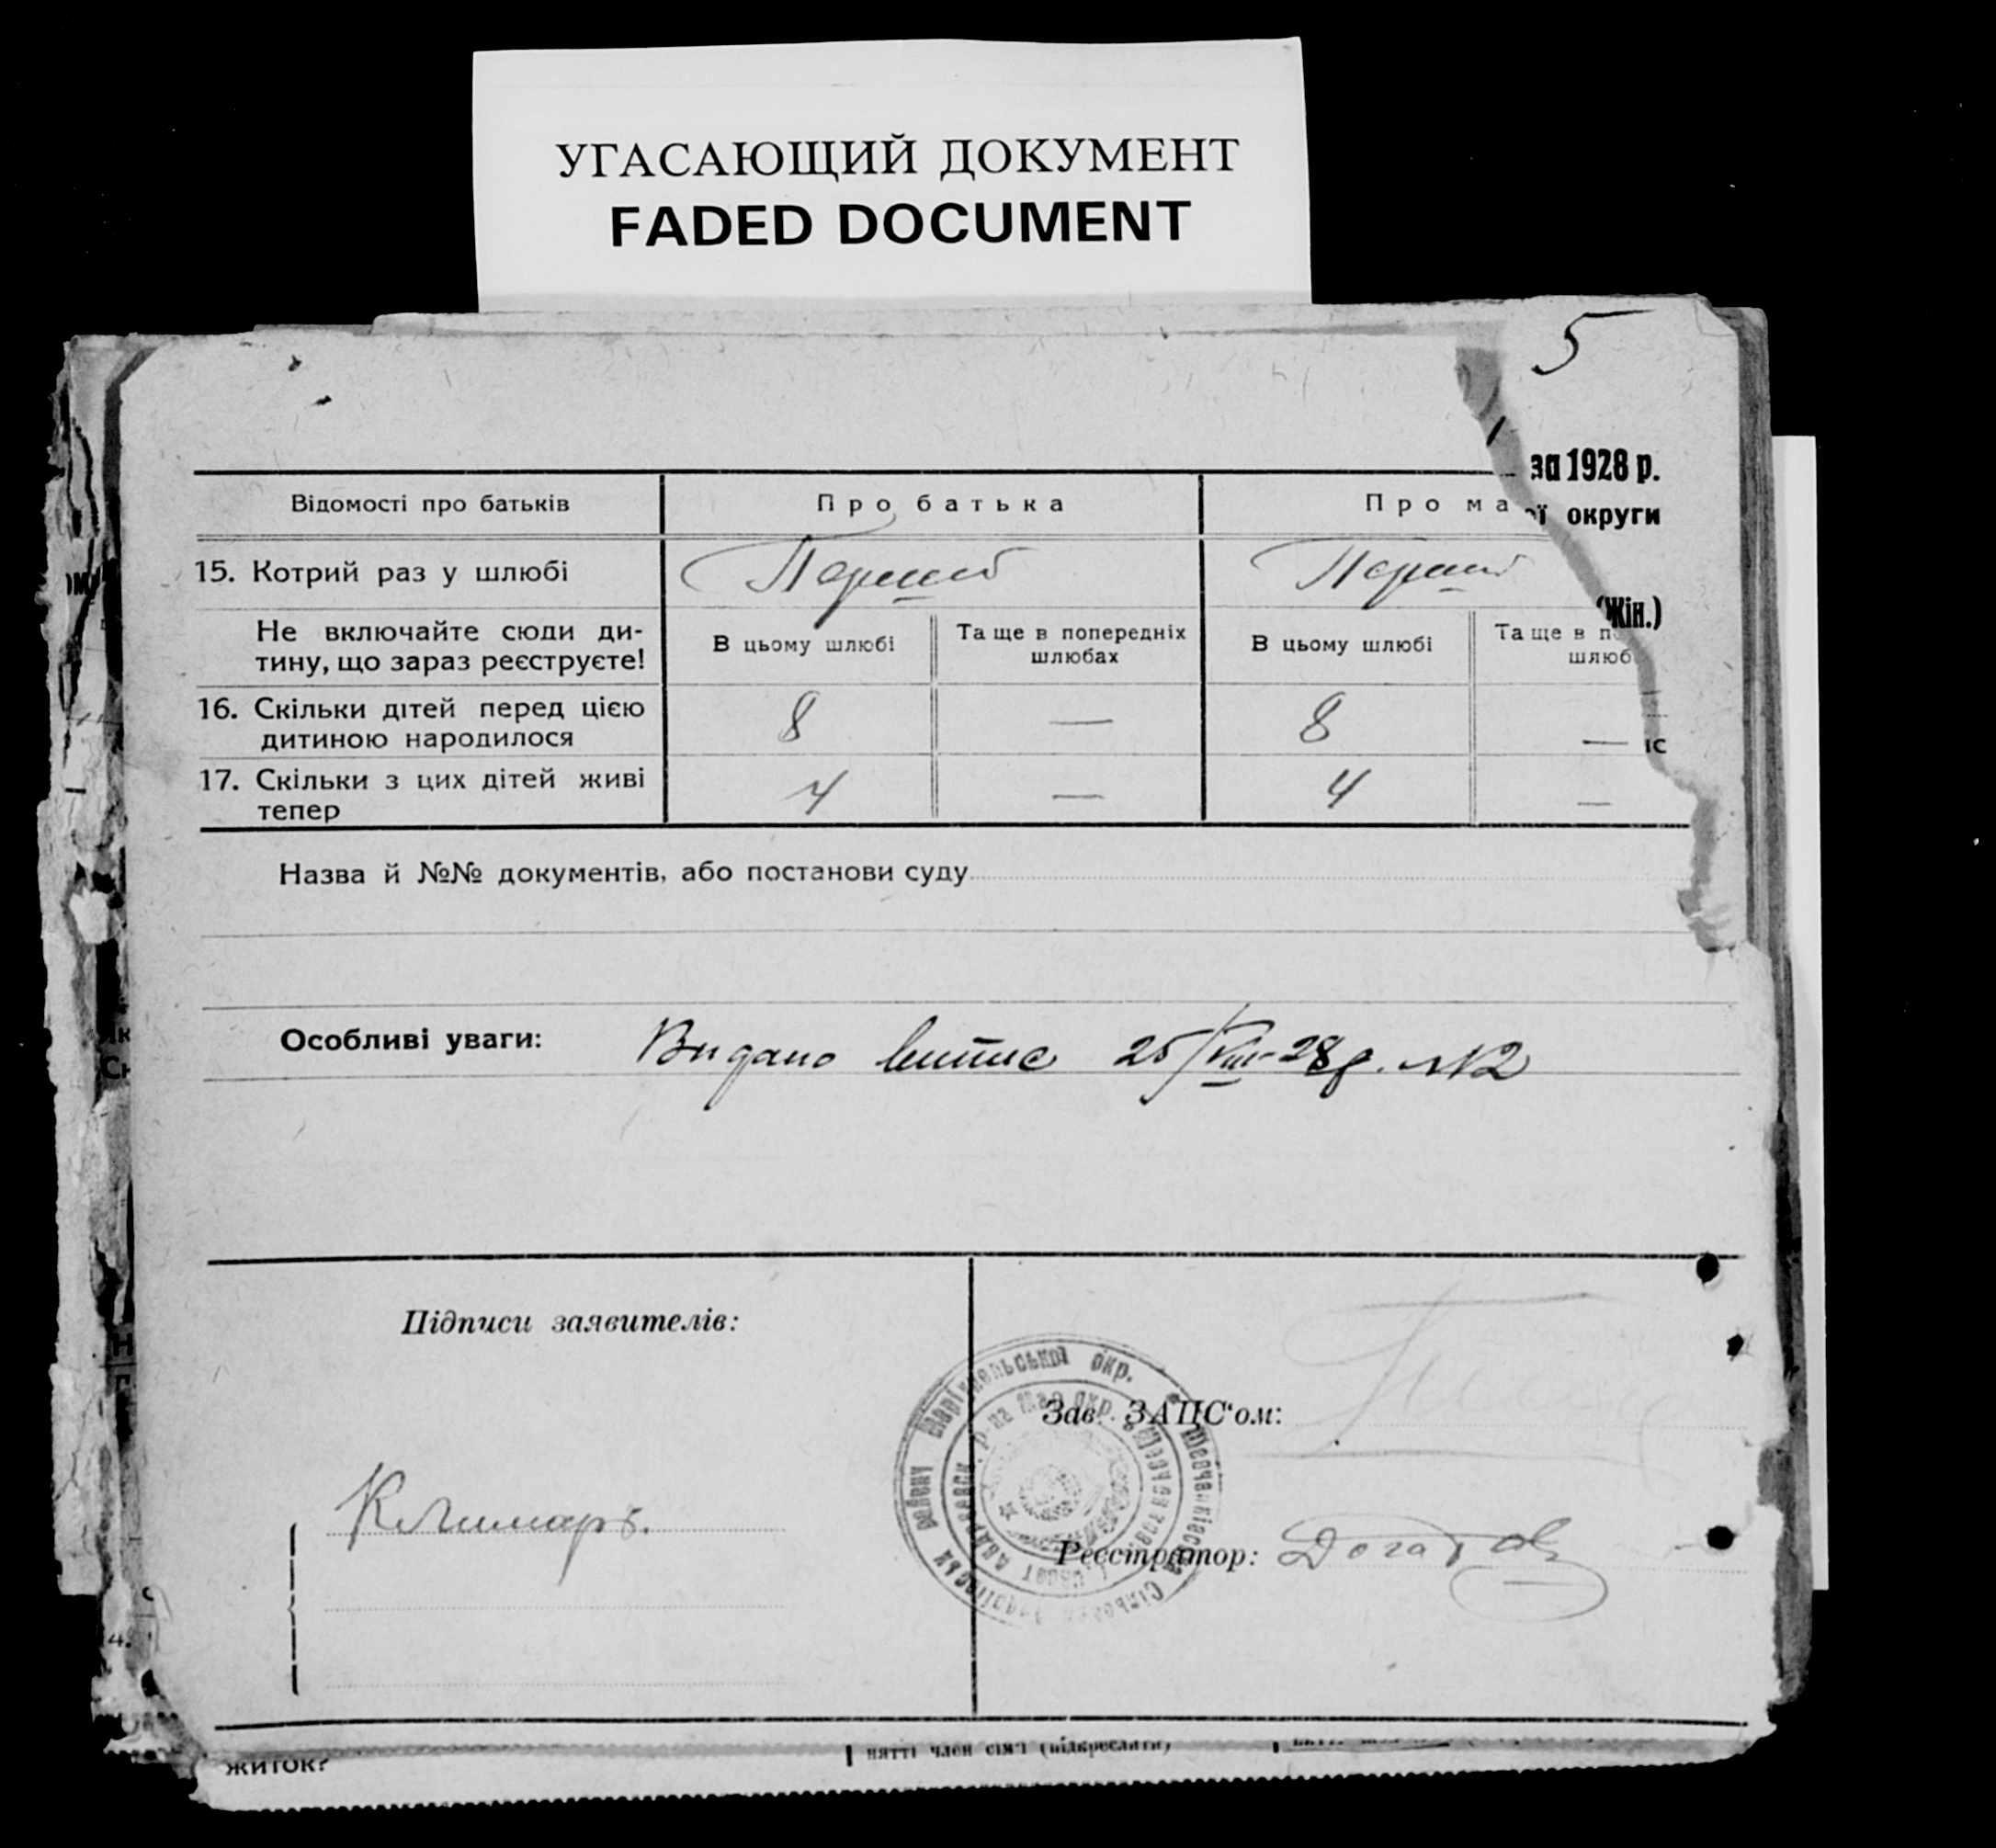 УГАСАЮЩИЙ ДОКУМЕНТ
FADED DOCUMENT
5
за 1928 р.
ої округи
(Жін.)
Відомості про батьків Про батька Про ма
15. Котрий раз у шлюбі Перший Перший
Не включайте сюди ди-
тину, що зараз реєструєте!
В цьому шлюбі Та ще в попередніх
шлюбах
В цьому шлюбі Та ще в п
шлюб
16. Скільки дітей перед цією
дитиною народилося
8 — 8 —
іс
17. Скільки з цих дітей живі
тепер
4 — 4 —
Назва й №№ документів, або постанови суду
Особливі уваги: Видано витис 25/VIII-28 р. №2
Підписи заявителів:
Зав. ЗАГС'ом:
Маріюпольської окр.
Реєстратор:
житок?
нятті член сім'ї (підкреслити)